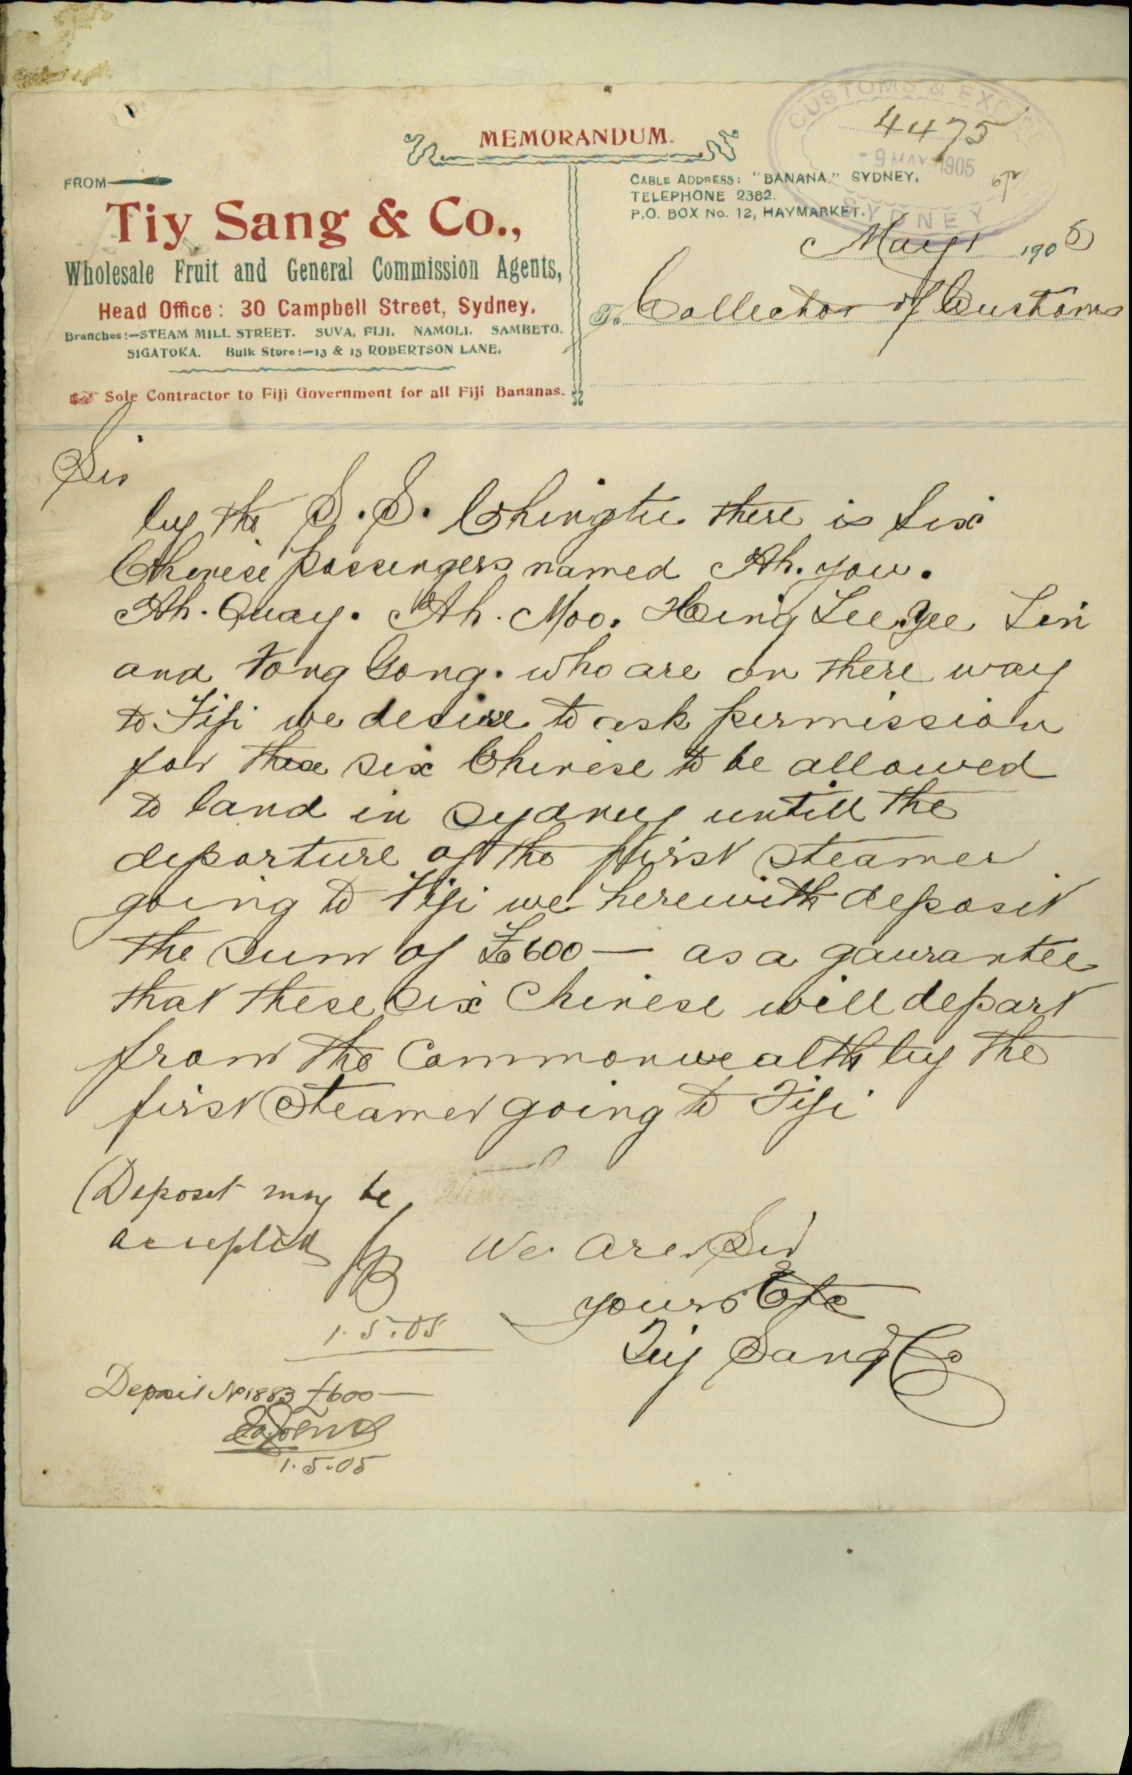 CUSTOMS & EXCISE
4475
- 9 MAY 1905
SYDNEY
MEMORANDUM.
FROM
Tiy Sang & Co.,
Wholesale Fruit and General Commission Agents,
Head Office: 30 Campbell Street, Sydney.
Branches:—STEAM MILL STREET. SUVA, FIJI. NAMOLI. SAMBETO.
SIGATOKA. Bulk Store:—13 & 15 ROBERTSON LANE.
Sole Contractor to Fiji Government for all Fiji Bananas.
CABLE ADDRESS: "BANANA" SYDNEY.
TELEPHONE 2382.
P.O. BOX No. 12, HAYMARKET.
May 1 1905
To Collector of Customs
Sir
by the S.S. Chingtu there is six
Chinese passengers named Ah. You.
Ah. Quay. Ah. Moo. Hing Lee. Yee Sin
and Fong Gong. who are on there way
to Fiji we desire to ask permission
for these six Chinese to be allowed
to land in Sydney untill the
departure of the first steamer
going to Fiji we herewith deposit
the sum of £600— as a gaurantee
that these six Chinese will depart
from the Commonwealth by the
first steamer going to Fiji
(Deposit may be
accepted
1.5.05
We are Sir
yours Etc
Tiy Sang & Co
Deposit No 1883 £600—
1.5.05